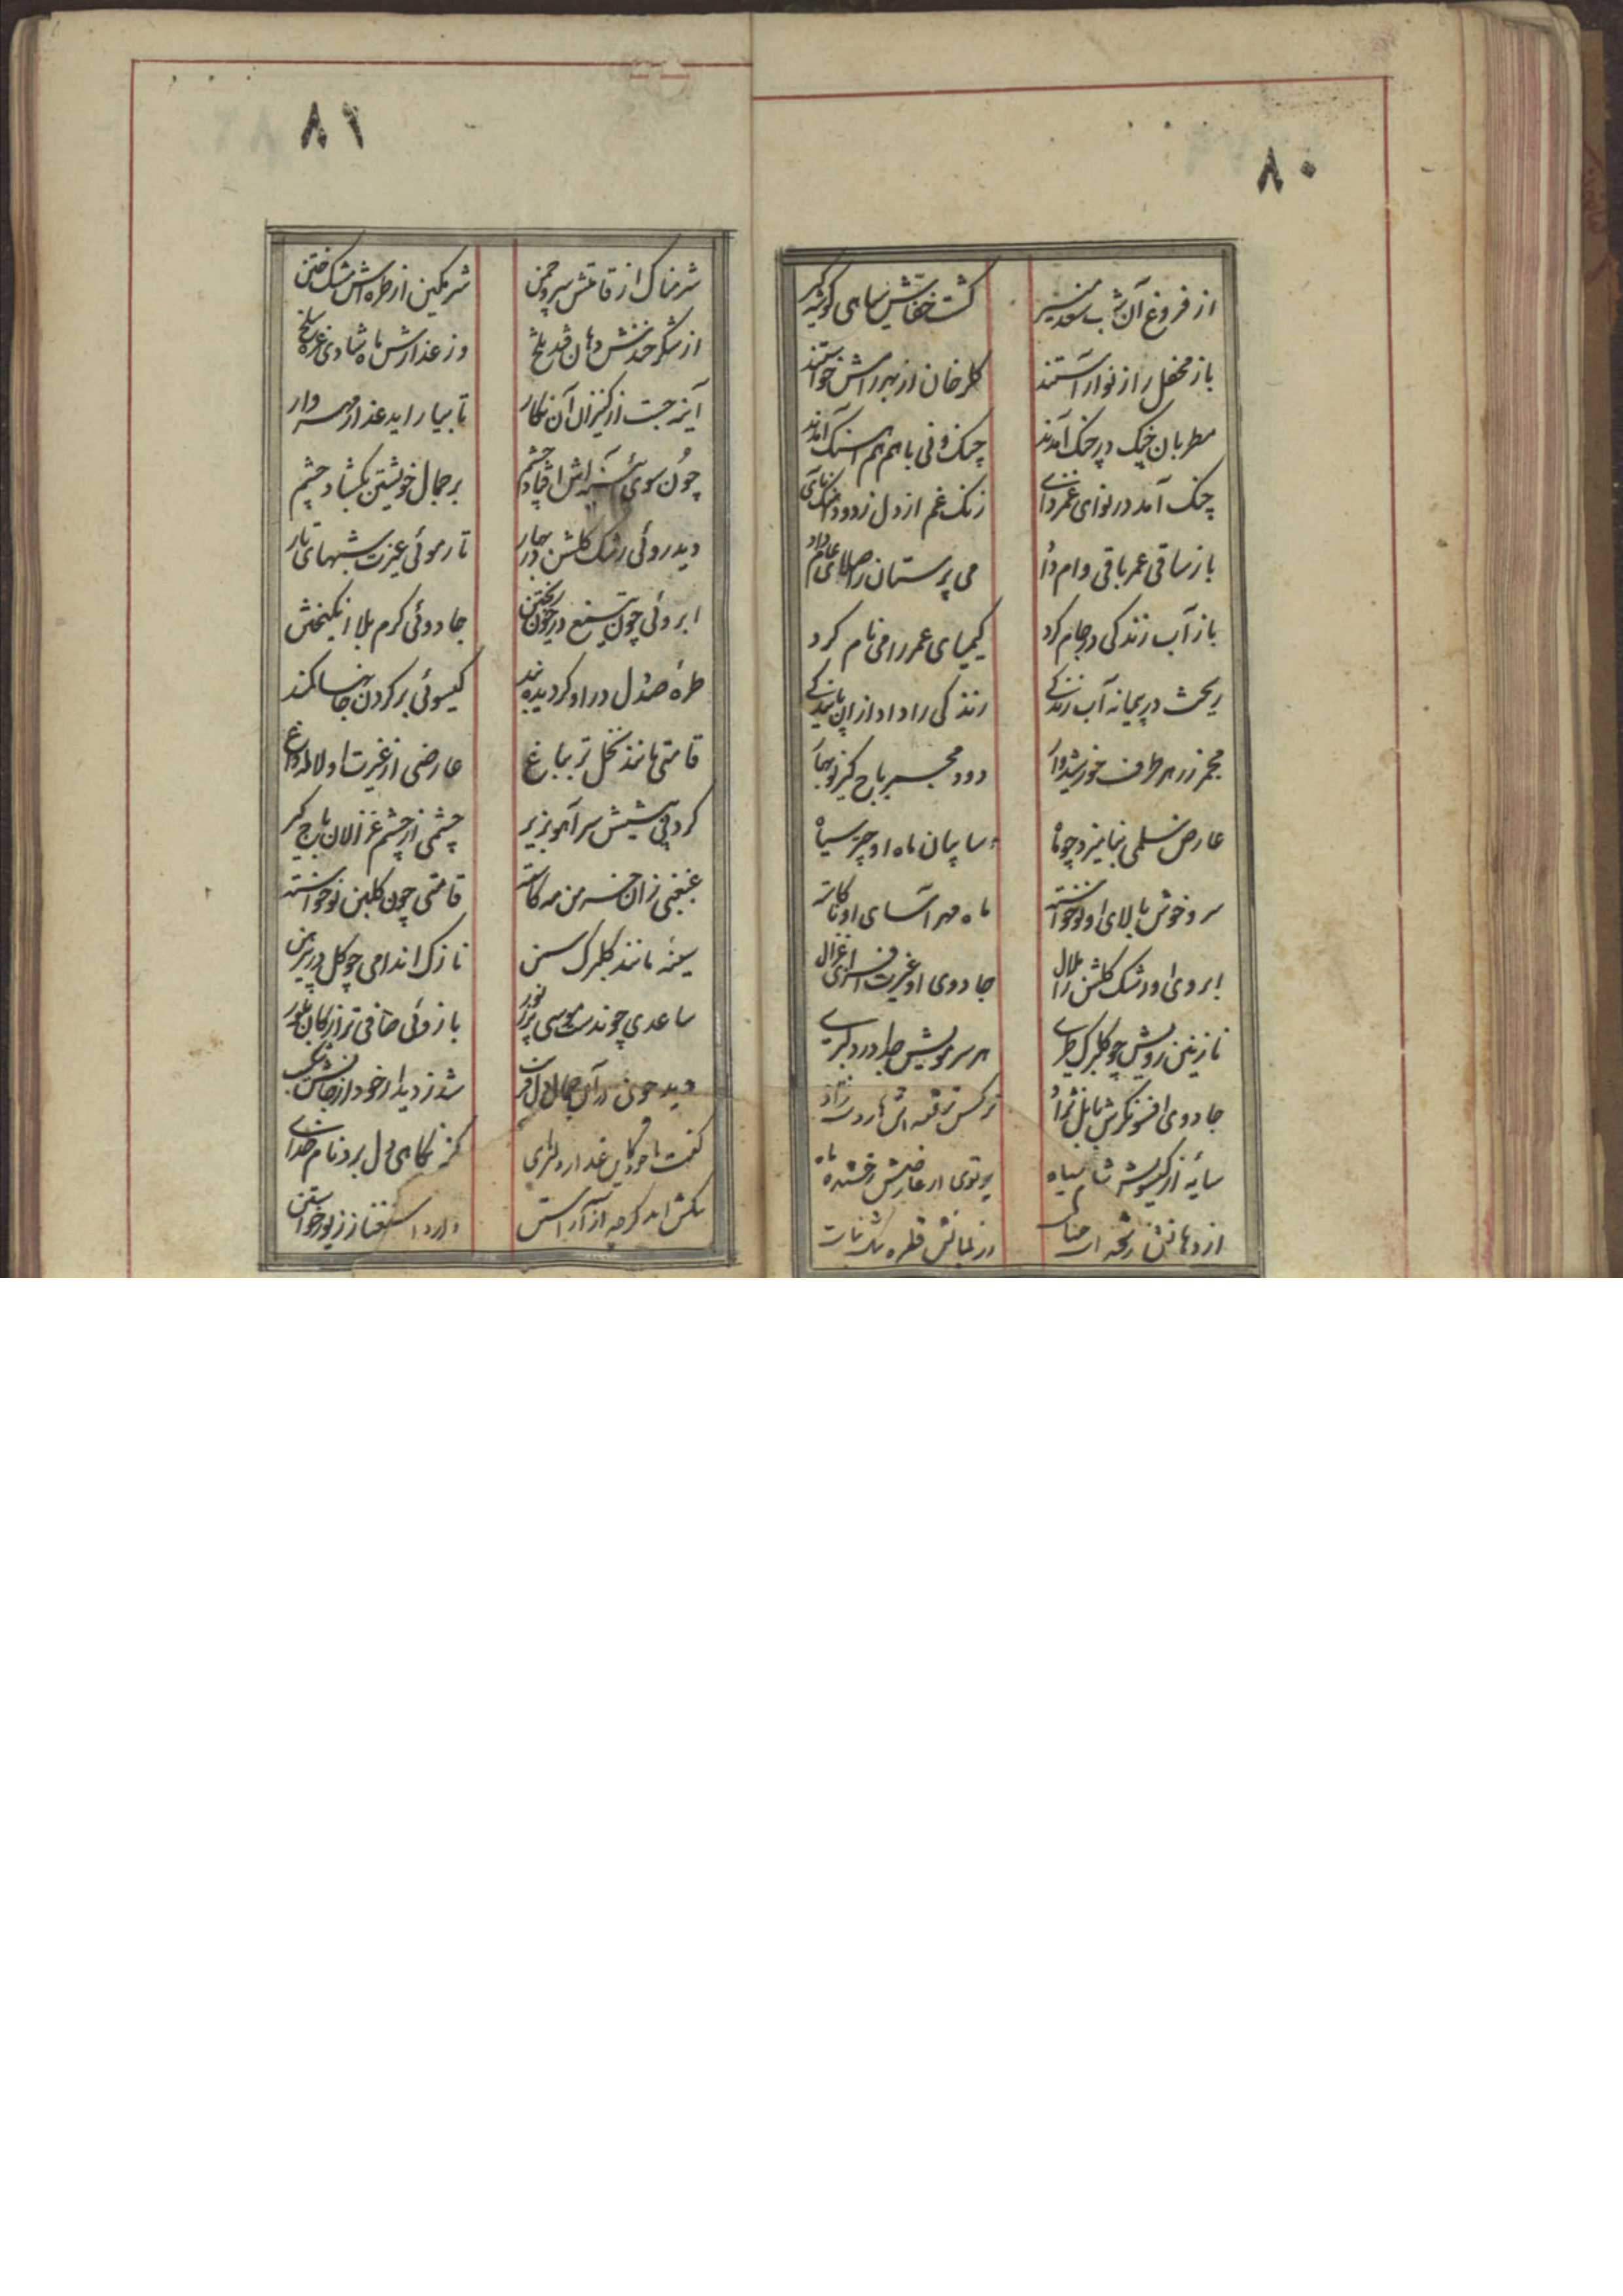 ۸۰
از فروغ آن شب سعد منیر گشت خفاش سیاهی گوشه گیر
باز محفل را ز نو آراستند گلرخان از بهر رامش خواستند
مطربان چنگ در چنگ آمدند چنگ و نی با هم هم آهنگ آمدند
چنگ آمد در نوای غمزدای زنگ غم از دل زدود آهنگ نای
باز ساقی عمر باقی وام داد می پرستان را صلای عام داد
باز آب زندگی در جام کرد کیمیای عمر را می نام کرد
ریخت در پیمانه آب زندگی زندگی را داد از آن پایندگی
مجمر زر هر طرف خورشیدوار دود مجمر باج گیر نوبهار
عارض سلمی نمایند چو ماه سایبان ماه او چتر سیاه
سرو خوش بالای او نوخاسته ماه مهرآسای او ناکاسته
ابروی او رشک گلشن را هلال جادوی او غیرت افزای غزال
نازنین رویش چو گلبرگ طری هر سر مویش جدا در دلبری
جادوی افسونگرش بابل نژاد نرگس پر فتنه اش هاروت زاد
سایه از گیسویش شام سیاه پرتوی از عارضش رخشنده ماه
از دهانش رشحه آب حیات از لبانش قطره تنگ نبات
۸۱
شرمناک از قامتش سرو چمن شرمگین از طره اش مشک ختن
از شکرخندش دهان قند تلخ وز عذارش ماه شادی غره سلخ
آینه جست از کنیزان آن نگار تا بیاراید عذار مهروار
چون سوی آئینه اش افتاد چشم بر جمال خویشتن بگشاد چشم
دید روئی رشک گلشن در بهار تار موئی غیرت شبهای تار
ابروئی چون تیغ در خون ریختن جادوئی گرم بلا انگیختن
طره صد دل در او گردیده بند گیسوئی بر گردن جانها کمند
قامتی مانند نخل تر بباغ عارضی از غیرت او لاله داغ
کرده پیشش سر آهو بزیر چشمی از چشم غزالان باج گیر
غبغبی زان خرمن مه کاسته قامتی چون گلبن نوخواسته
سینه مانند گلبرگ سمن نازک اندامی چو گل در پیرهن
ساعدی چون دست موسی پر ز نور بازوئی صافی تر از کان بلور
دید چون در آن جمال دلفریب شد ز دیدار خود از جانش شکیب
گفت با خود کاین عذار دلربای کز نگاهی دل برد نام خدای
نگشاید گرچه از آراستن دارد استغنا ز زیور خواستن